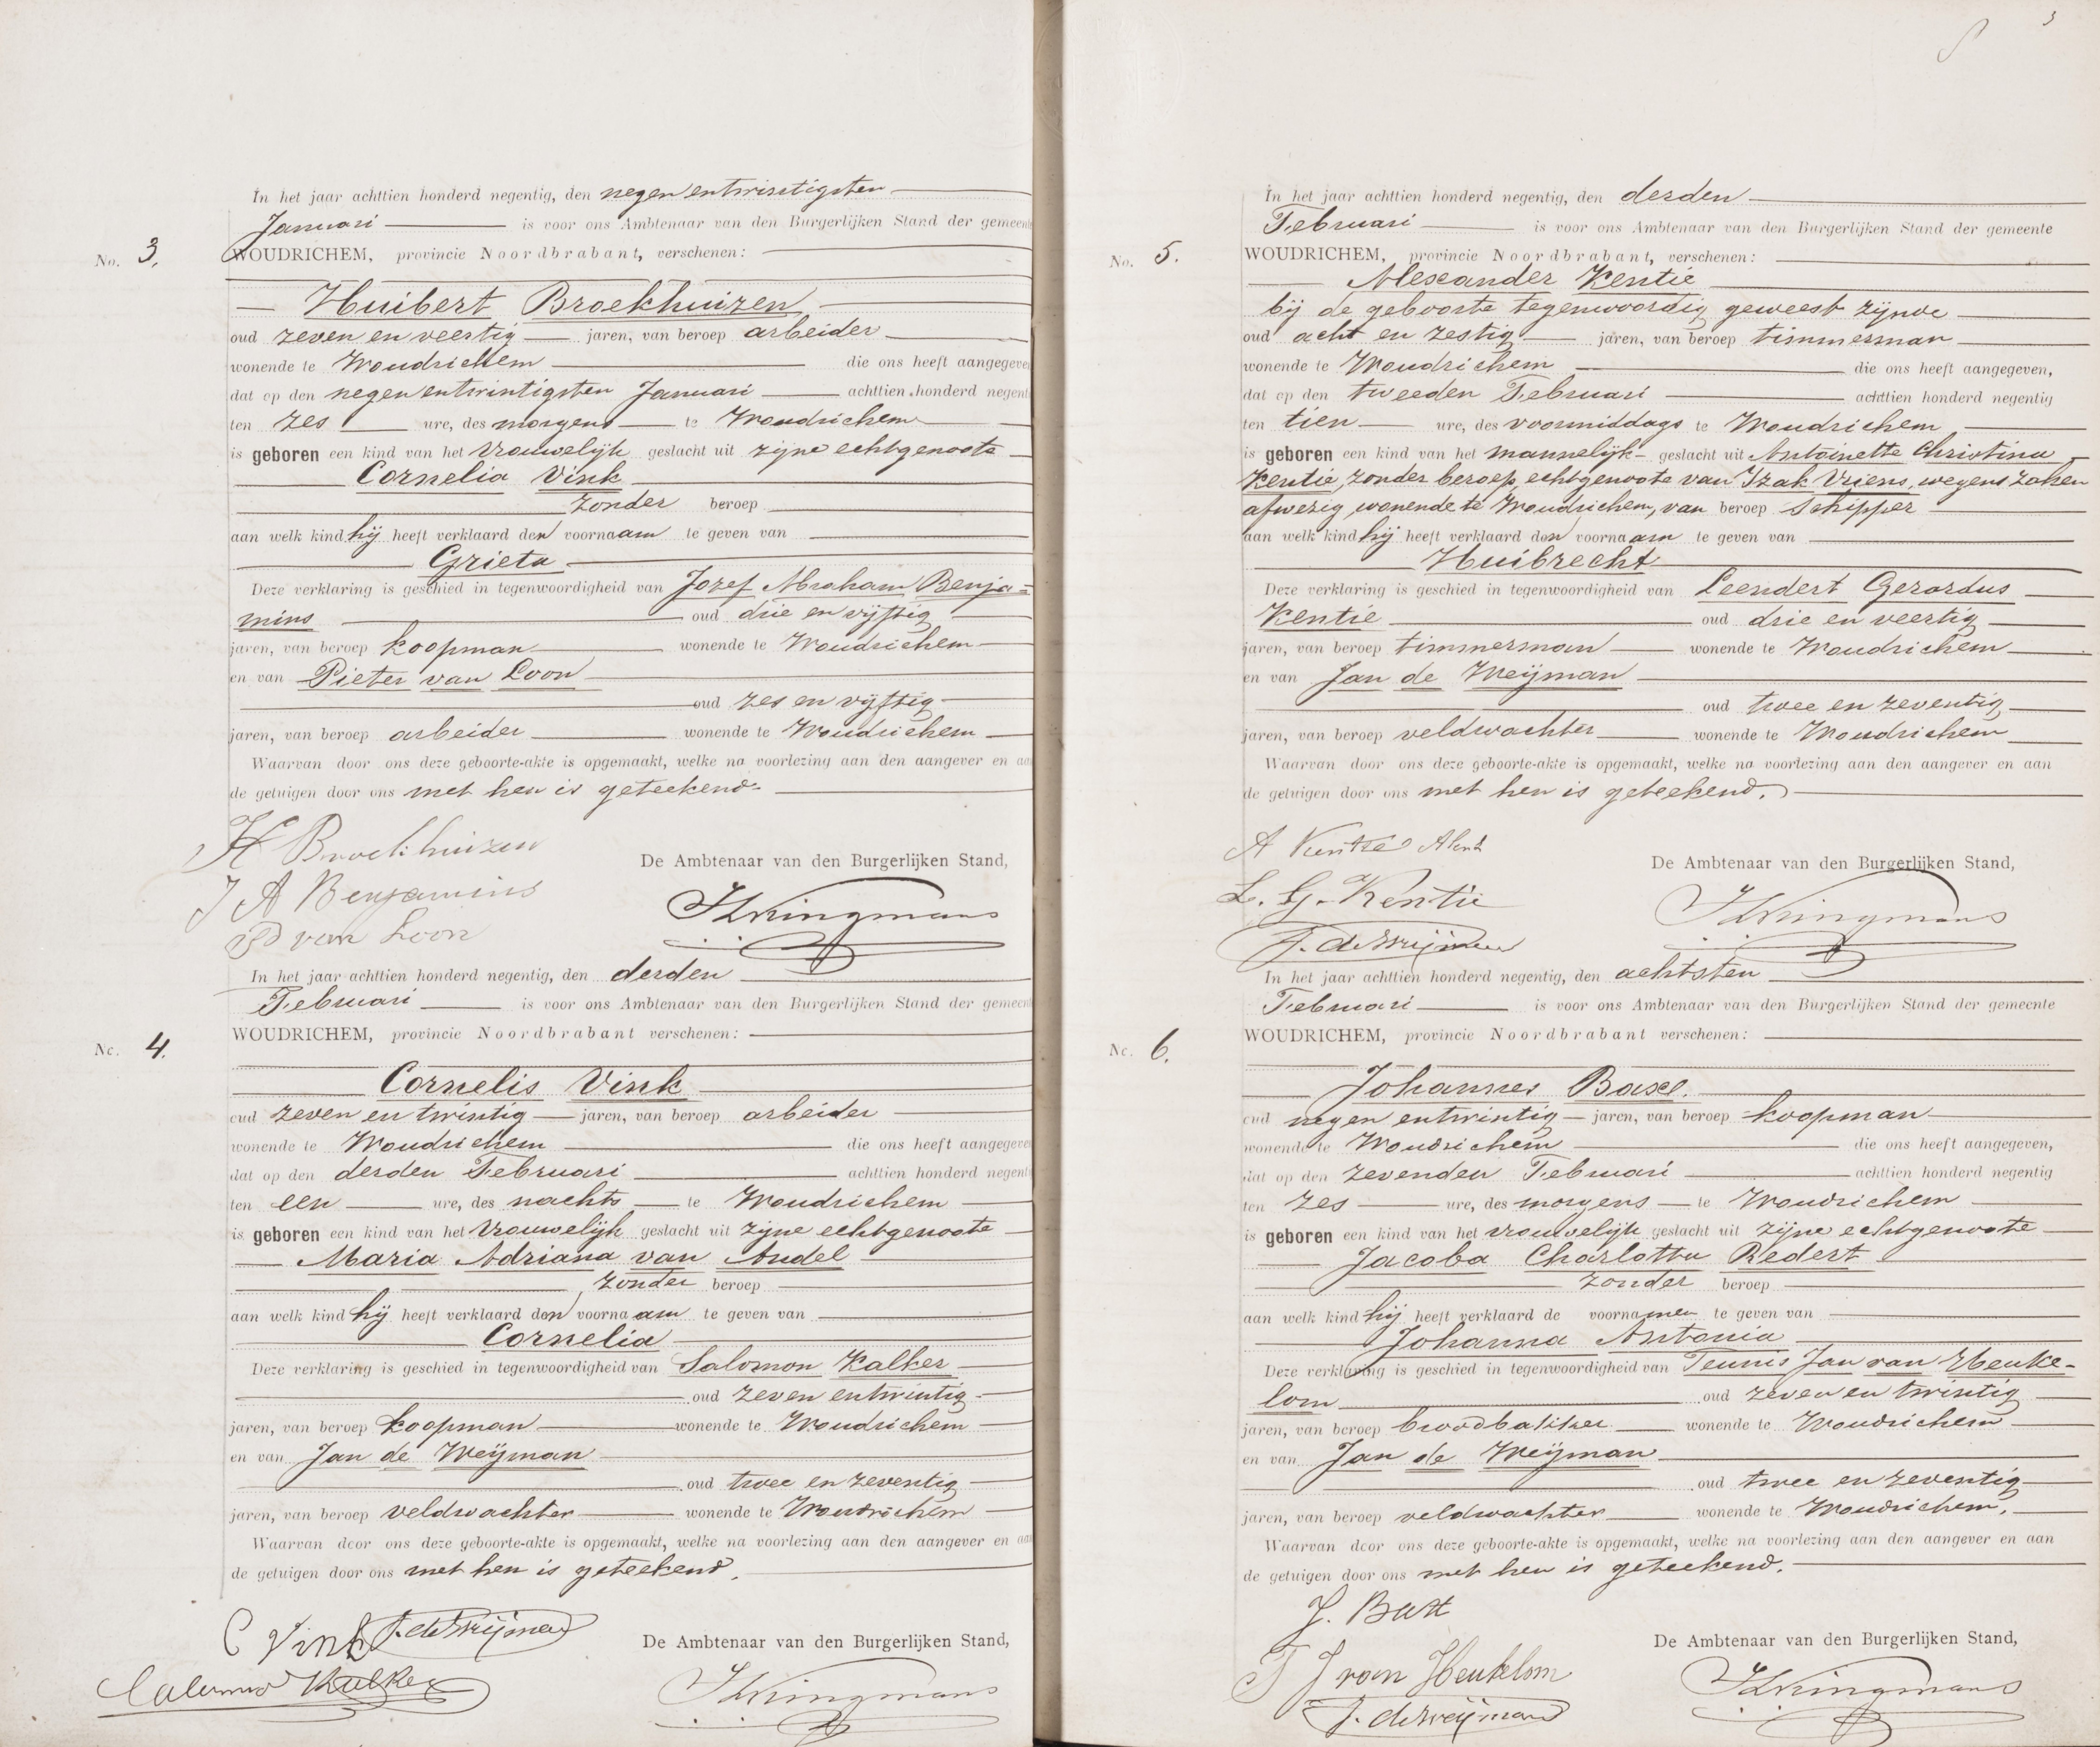 In het jaar achttien honderd negentig, den negen entwisstigsten
Januari is voor ons Ambtenaar van den Burgerlijken Stand der gemeente
No. 3.
WOUDRICHEM, provincie Noordbrabant, verschenen:
Huibert Broekhuizen
oud zeven en veertig jaren, van beroep arbeider
wonende te Woudrichem die ons heeft aangegeven
dat op den negen entwintigsten Januari achttien honderd negenti
ten zes ure, des morgens te Woudrichem
is geboren een kind van het vrouwelijk geslacht uit zijne echtgenoote
Cornelia Vink
zonder beroep
aan welk kind hij heeft verklaard den voornaam te geven van
Grieta
Deze verklaring is geschied in tegenwoordigheid van Jozef Abraham Benja=
mins oud drie en vijftig
jaren, van beroep koopman wonende te Woudrichem
en van Pieter van Loon
oud zes en vijftig
jaren, van beroep arbeider wonende te Woudrichem
Waarvan door ons deze geboorte-akte is opgemaakt, welke na voorlezing aan den aangever en aan
de getuigen door ons met hen is geteekend.
H Broekhuizen
De Ambtenaar van den Burgerlijken Stand,
J A Benjamins
P van Loon
In het jaar achttien honderd negentig, den derden
Februari is voor ons Ambtenaar van den Burgerlijken Stand der gemeent
No. 4.
WOUDRICHEM, provincie Noordbrabant verschenen:
Cornelis Vink
oud zeven en twintig jaren, van beroep arbeider
wonende te Woudrichem die ons heeft aangegeven
dat op den derden Februari achttien honderd negenti
ten een ure, des nachts te Woudrichem
is geboren een kind van het vrouwelijk geslacht uit zijne echtgenoote
Maria Adriana van Andel
zonder beroep
aan welk kind hij heeft verklaard den voornaam te geven van
Cornelia
Deze verklaring is geschied in tegenwoordigheid van Salomon Kalker
oud zeven entwintig
jaren, van beroep koopman wonende te Woudrichem
en van Jan de Weijman
oud twee en zeventig
jaren, van beroep veldwachter wonende te Woudrichem
Waarvan door ons deze geboorte-akte is opgemaakt, welke na voorlezing aan den aangever en aan
de getuigen door ons met hen is geteekend.
C Vink J. de Weijman
De Ambtenaar van den Burgerlijken Stand,
Salomon Kalker
3
In het jaar achttien honderd negentig, den derden
Februari is voor ons Ambtenaar van den Burgerlijken Stand der gemeente
No. 5.
WOUDRICHEM, provincie Noordbrabant, verschenen:
Alexander Kentie
bij de geboorte tegenwoordig geweest zijnde
oud acht en zestig jaren, van beroep timmerman
wonende te Woudrichem die ons heeft aangegeven,
dat op den tweeden Februari achttien honderd negentig
ten tien ure, des voormiddags te Woudrichem
is geboren een kind van het mannelijk geslacht uit Antoinette Christina
Kentie, zonder beroep, echtgenoote van Izak Vriens, wegens zaken
afwezig, wonende te Woudrichem, van beroep Schipper
aan welk kind hij heeft verklaard den voornaam te geven van
Huibrecht
Deze verklaring is geschied in tegenwoordigheid van Leendert Gerardus
Kentie oud drie en veertig
jaren, van beroep timmerman wonende te Woudrichem
en van Jan de Weijman
oud twee en zeventig
jaren, van beroep veldwachter wonende te Woudrichem
Waarvan door ons deze geboorte-akte is opgemaakt, welke na voorlezing aan den aangever en aan
de getuigen door ons met hen is geteekend.
A Kentie
De Ambtenaar van den Burgerlijken Stand,
L. G. Kentie
J. de Weijman
In het jaar achttien honderd negentig, den achtsten
Februari is voor ons Ambtenaar van den Burgerlijken Stand der gemeente
No. 6.
WOUDRICHEM, provincie Noordbrabant verschenen:
Johannes Bax.
oud negen entwintig jaren, van beroep koopman
wonende te Woudrichem die ons heeft aangegeven,
dat op den zevenden Februari achttien honderd negentig
ten zes ure, des morgens te Woudrichem
is geboren een kind van het vrouwelijk geslacht uit zijne echtgenoote
Jacoba Charlotta Redert
zonder beroep
aan welk kind hij heeft verklaard de voornamen te geven van
Johanna Antonia
Deze verklaring is geschied in tegenwoordigheid van Teunis Jan van Heuke-
lom oud zeven en twintig
jaren, van beroep broodbakker wonende te Woudrichem
en van Jan de Weijman
oud twee en zeventig
jaren, van beroep veldwachter wonende te Woudrichem.
Waarvan door ons deze geboorte-akte is opgemaakt, welke na voorlezing aan den aangever en aan
de getuigen door ons met hen is geteekend.
J. Bax
De Ambtenaar van den Burgerlijken Stand,
T J van Heukelom
J. de Weijman